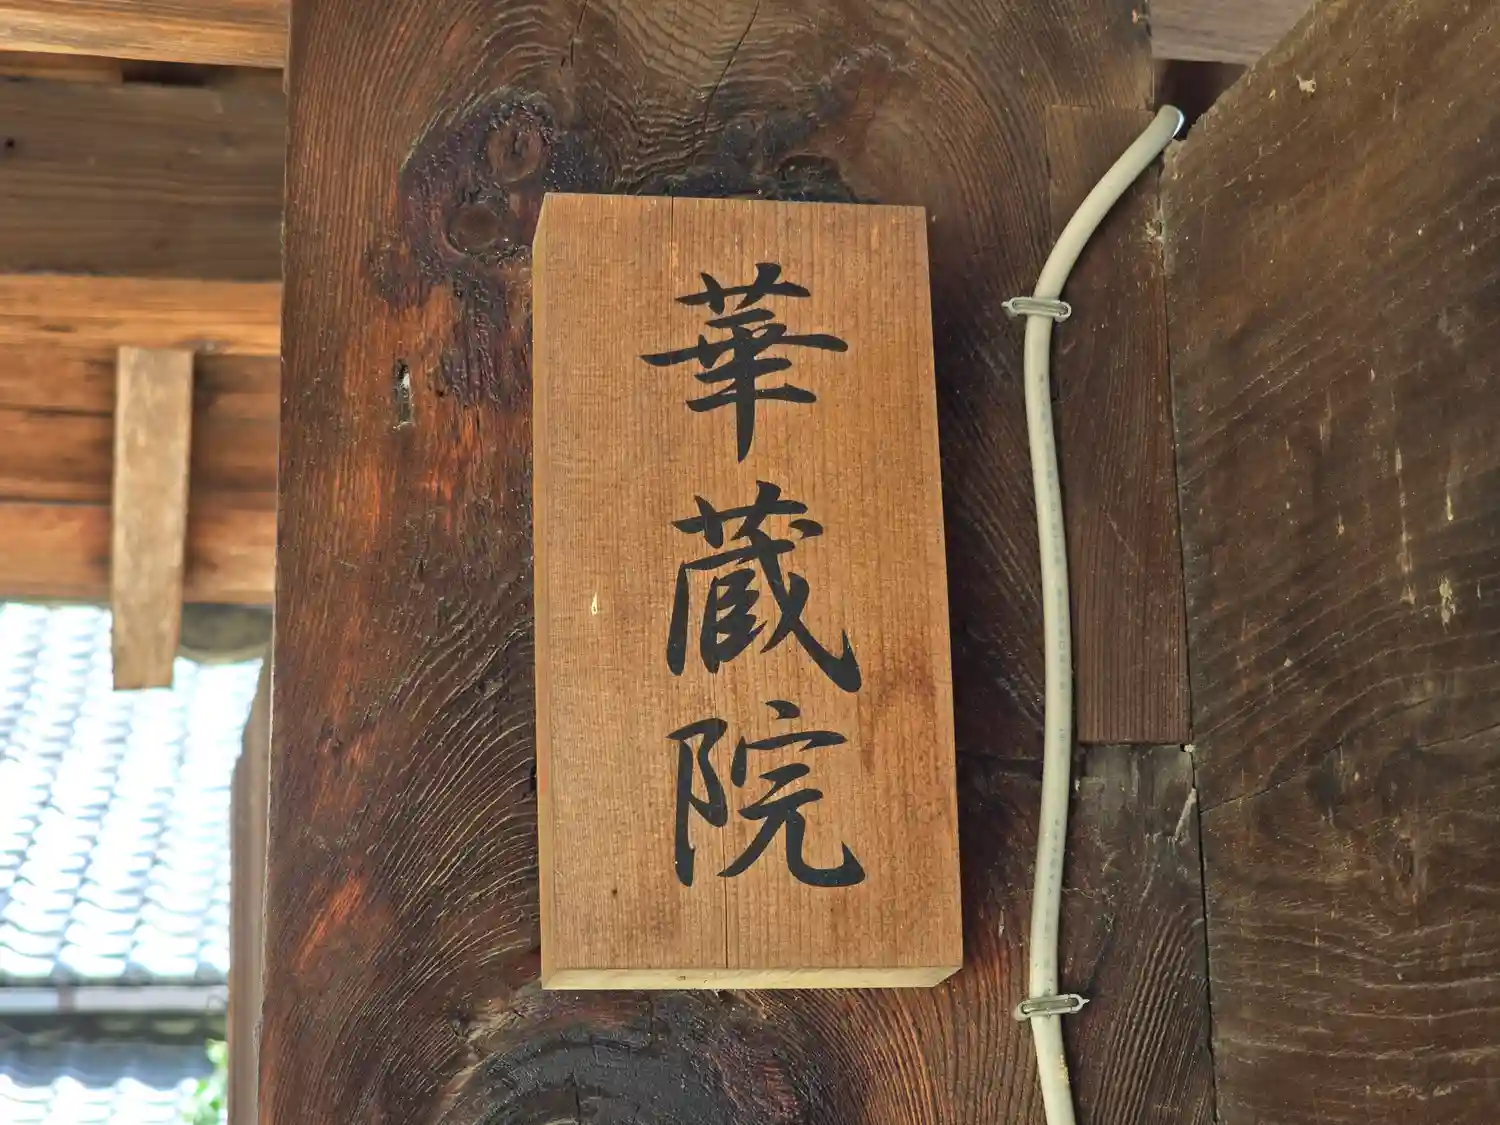 華蔵院